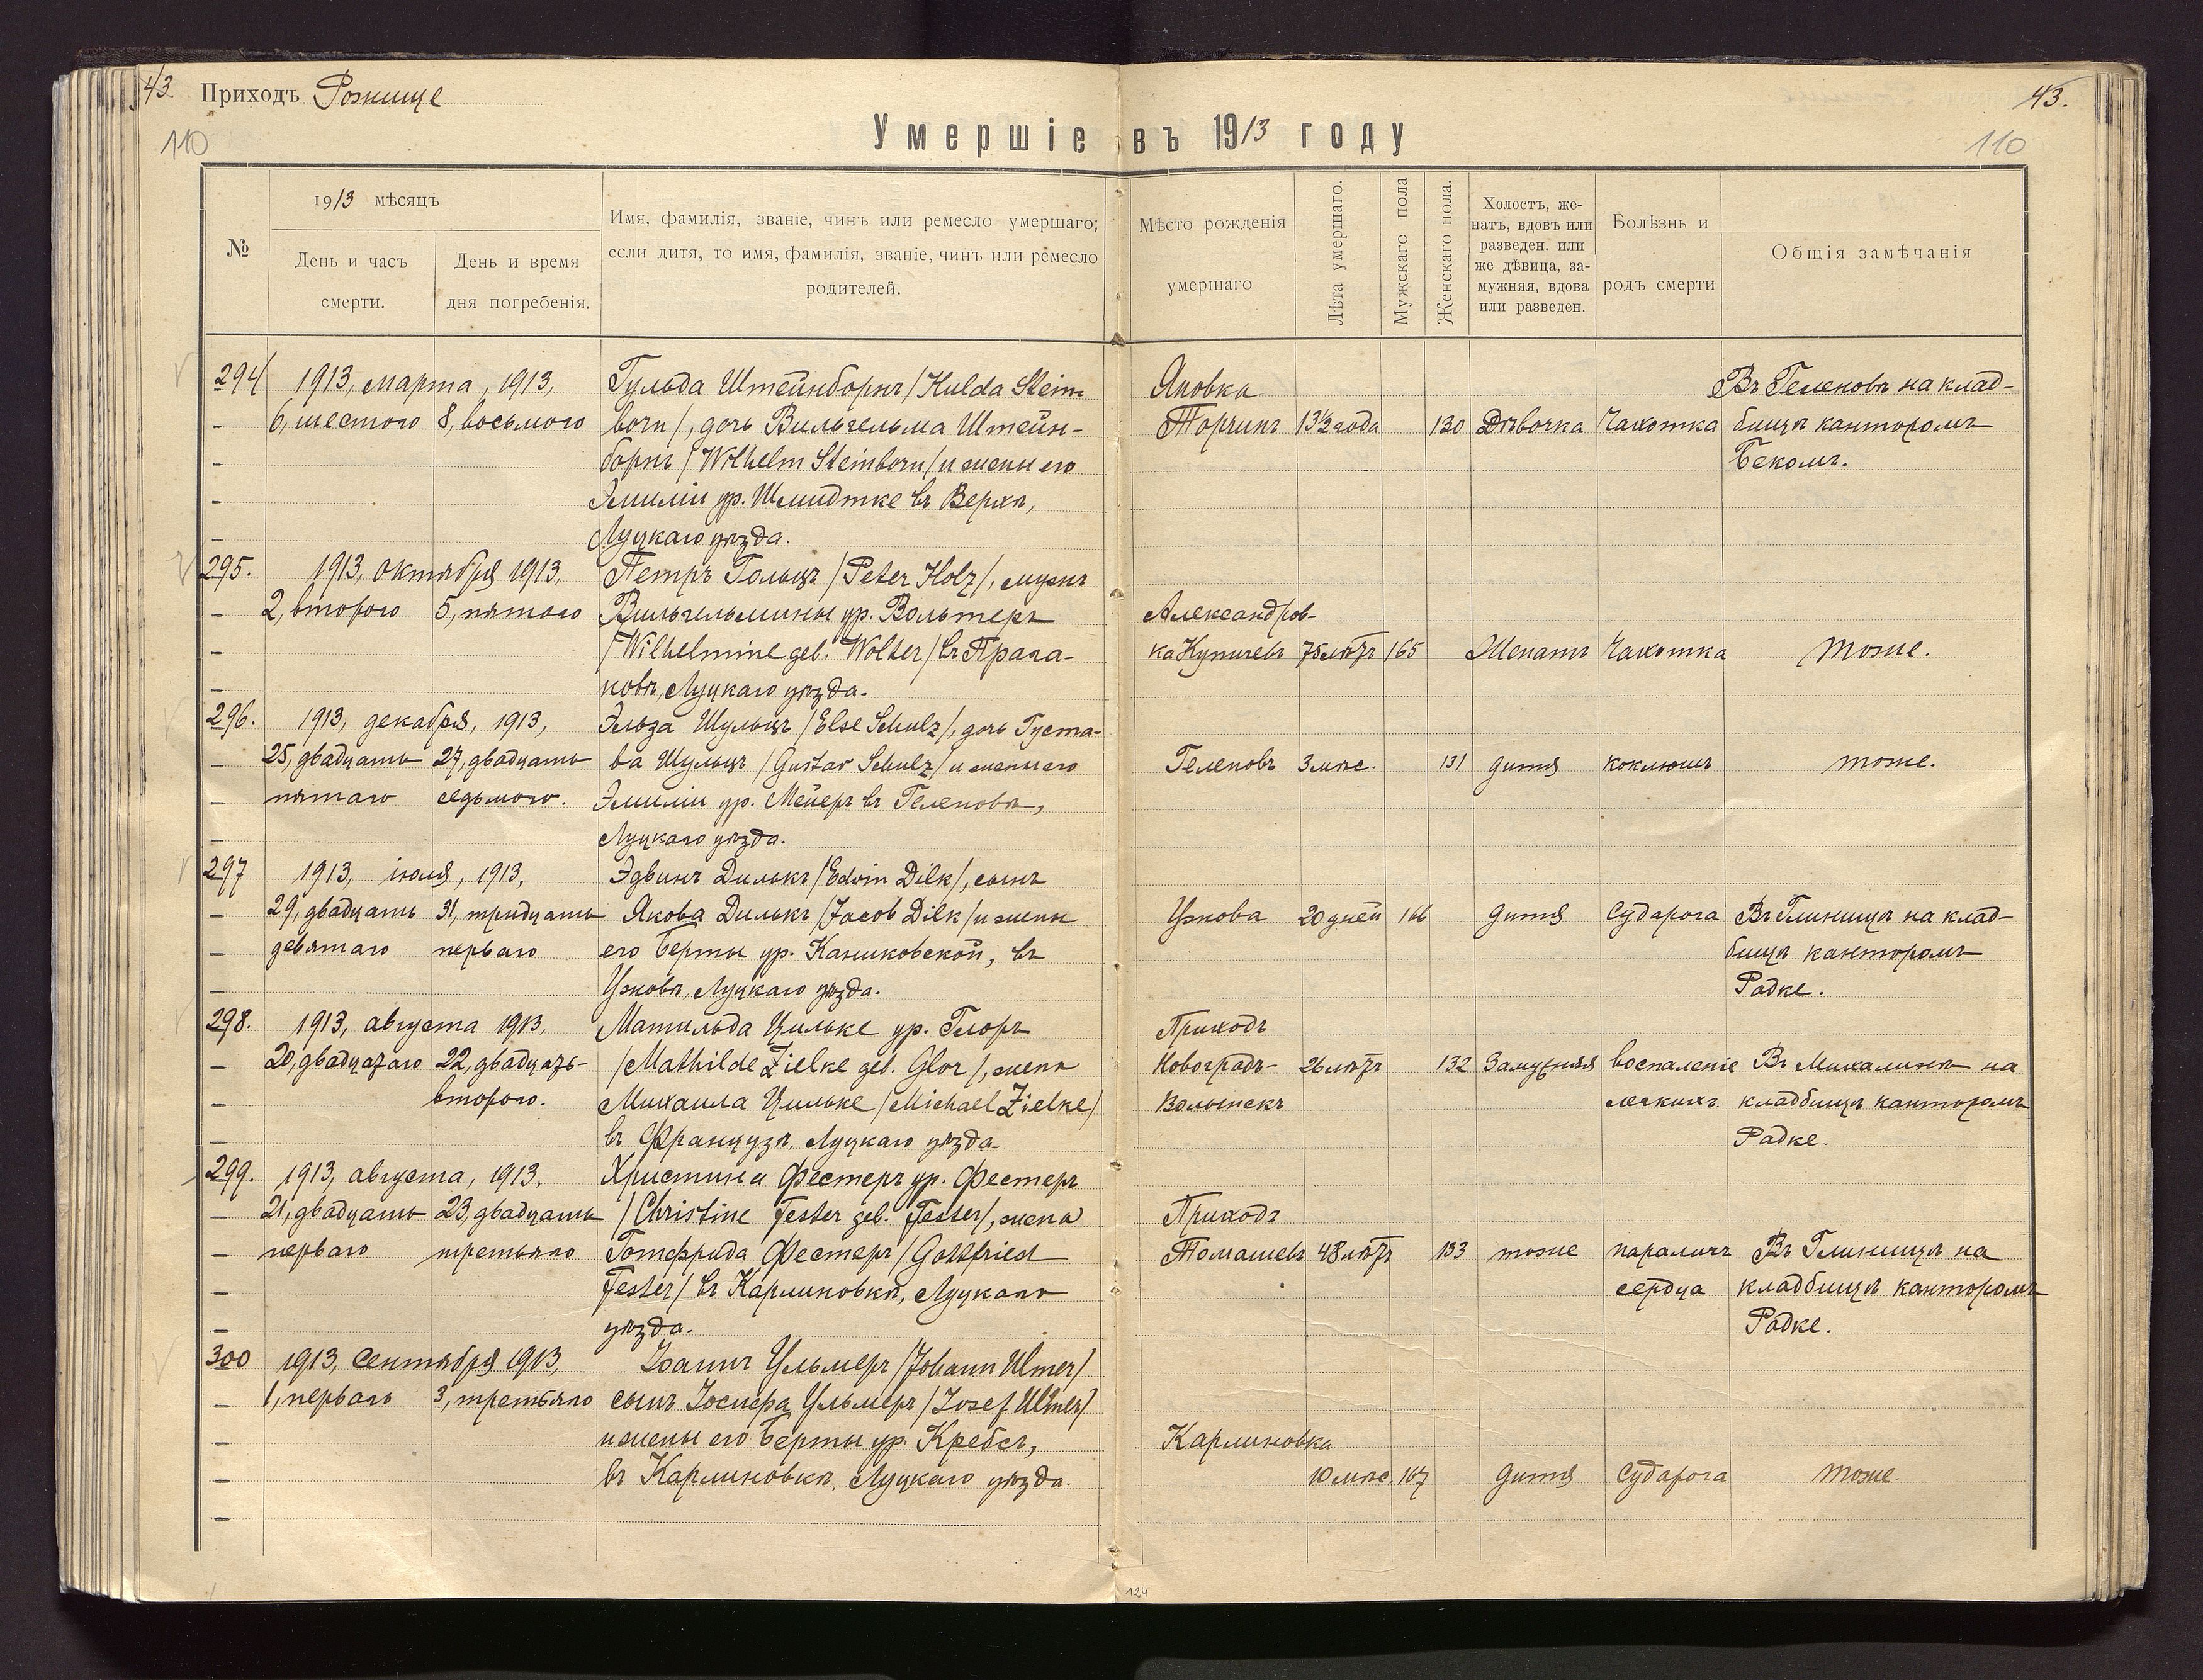 43.
Приходъ Рожище
43.
110
110
Умершіе въ 1913 году
№
1913 мѣсяцъ
День и часъ смерти.
День и время дня погребенія.
Имя, фамилія, званіе, чинъ или ремесло умершаго;
если дитя, то имя, фамилія, званіе, чинъ или ремесло
родителей.
Мѣсто рожденія
умершаго
Лѣта умершаго.
Мужскаго пола
Женскаго пола.
Холостъ, же-
натъ, вдовъ или
разведен. или
же дѣвица, за-
мужняя, вдова
или разведен.
Болѣзнь и
родъ смерти
Общія замѣчанія
294 1913, марта, 1913, Гульда Штейнборнъ /Hulda Stein- Яновка Въ Геленовѣ на клад-
6, шестого 8, восьмого born/, дочь Вильгельма Штейн- Торчинъ 13½ года 130 Дѣвочка Чахотка бищѣ канторомъ
борнъ /Wilhelm Steinborn/ и жены его Бекомъ.
Эмиліи ур. Шмидтке въ Верхѣ,
Луцкаго уѣзда.
295. 1913, октября 1913, Петръ Гольцъ /Peter Holz/, мужъ
2, второго 5, пятого Вильгельмины ур. Вольтеръ Александров-
/Wilhelmine geb. Wolter/ въ Прага- ка Купичевъ 75 лѣтъ 165 Женатъ Чахотка тоже.
новѣ, Луцкаго уѣзда.
296. 1913, декабря, 1913, Эльза Шульцъ /Else Schulz/, дочь Густа-
25, двадцать 27, двадцать ва Шульцъ /Gustav Schulz/ и жены его Геленовъ 3 мѣс. 131 дитя коклюшъ тоже.
пятаго седьмого. Эмиліи ур. Мейеръ въ Геленовѣ,
Луцкаго уѣзда.
297 1913, іюля, 1913, Эдвинъ Дилькъ /Edwin Dilk/, сынъ
29, двадцать 31, тридцать Якова Дилькъ /Jacob Dilk/ и жены Ужова 20 дней 166 дитя Судорога Въ Глинищѣ на клад-
девятаго перваго его Берты ур. Каниковской, въ бищѣ канторомъ
Ужовѣ, Луцкаго уѣзда. Радке.
298. 1913, августа 1913, Матильда Цильке ур. Глоръ Приходъ
20, двадцатаго 22, двадцать- /Mathilde Zielke geb. Glor/, жена Новоградъ- 26 лѣтъ 132 Замужняя воспаленіе Въ Михалинѣ на
второго. Михаила Цильке /Michael Zielke/ Волынскъ легкихъ кладбищѣ канторомъ
въ Французѣ, Луцкаго уѣзда. Радке.
299. 1913, августа, 1913, Христина Фестеръ ур. Фестеръ
21, двадцать 23, двадцать /Christine Fester geb. Fester/, жена Приходъ
перваго третьяго Готфрида Фестеръ /Gottfried Томашевъ 48 лѣтъ 133 тоже параличъ Въ Глинищѣ на
Fester/ въ Карлиновкѣ, Луцкаго сердца кладбищѣ канторомъ
уѣзда. Радке.
300 1913, Сентября 1913, Іоаннъ Ульмеръ /Johann Ulmer/
1, перваго 3, третьяго сынъ Іосифа Ульмеръ /Josef Ulmer/
и жены его Берты ур. Кребсъ, Карлиновка
въ Карлиновкѣ, Луцкаго уѣзда. 10 мѣс. 167 дитя Судорога тоже.
124